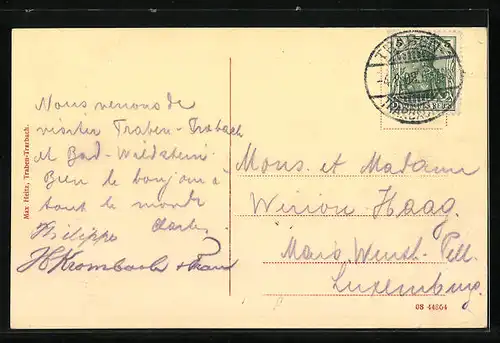 Nous venons de
visiter Traben-Trabach
et Bad-Wildstein.
Bien le bonjour à
tout le monde
Charles
Philippe
H Krombach
Max Heitz, Traben-Trarbach.
TRABEN-
TRARBACH
Mons. et Madame
Wirion Haag.
Luxemburg.
08 44864